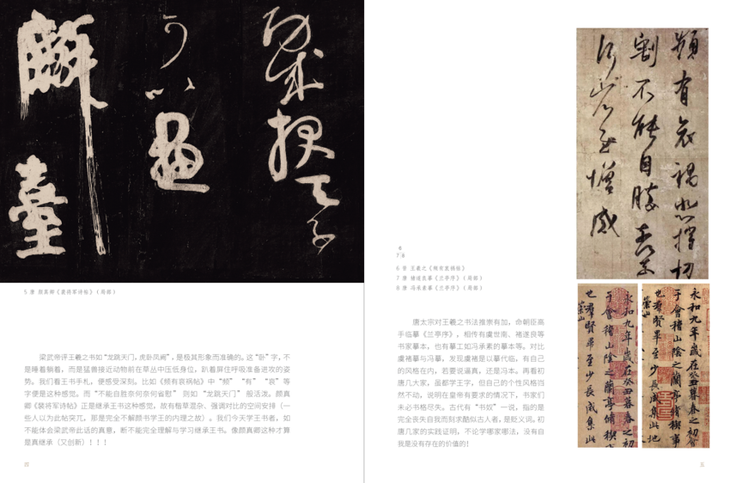 功成报天子
可以画
麟臺
5 唐 颜真卿《裴将军诗帖》（局部）
梁武帝评王羲之书如“龙跳天门，虎卧凤阙”，是极其形象而准确的。这“卧”字，不
是睡着躺着，而是猛兽接近动物前在草丛中压低身位，趴着屏住呼吸准备进攻的姿
势。我们看王书手札，便感受深刻。比如《频有哀祸帖》中“频”“有”“哀”等
字便是这种感觉。而“不能自胜奈何奈何省慰”则如“龙跳天门”般活泼。颜真
卿《裴将军诗帖》正是继承王书这种感觉，故有植草混杂、强调对比的空间安排（一
些人以为此帖突兀，那是完全不解颜书学王的内理之故）。我们今天学王书者，如
不能体会梁武帝此话的真意，断不能完全理解与学习继承王书。像颜真卿这种才算
是真继承（又创新）！！！
频有哀祸悲摧切
割不能自胜奈何
奈何省慰增感
6
7 8
6 晋 王羲之《频有哀祸帖》
7 唐 褚遂良摹《兰亭序》（局部）
8 唐 冯承素摹《兰亭序》（局部）
唐太宗对王羲之书法推崇有加，命朝臣高
手临摹《兰亭序》，相传有虞世南、褚遂良等
书家摹本，也有摹工如冯承素的摹本等。对比
虞褚摹与冯摹，发现虞褚是以摹代临，有自己
的风格在内，若要说逼真，还是冯本。再看初
唐几大家，虽都学王字，但自己的个性风格岿
然不动。说明在皇帝有要求的情况下，书家们
未必书格尽失。古代有“书奴”一说，指的是
完全丧失自我而刻求酷似古人者，是贬义词。初
唐几家的实践证明，不论学哪家哪法，没有自
我是没有存在的价值的！
永和九年岁在癸丑暮春之初会
于会稽山阴之兰亭修禊事
也群贤毕至少长咸集此地
永和九年岁在癸丑暮春之初会
于会稽山阴之兰亭修禊事
也群贤毕至少长咸集此